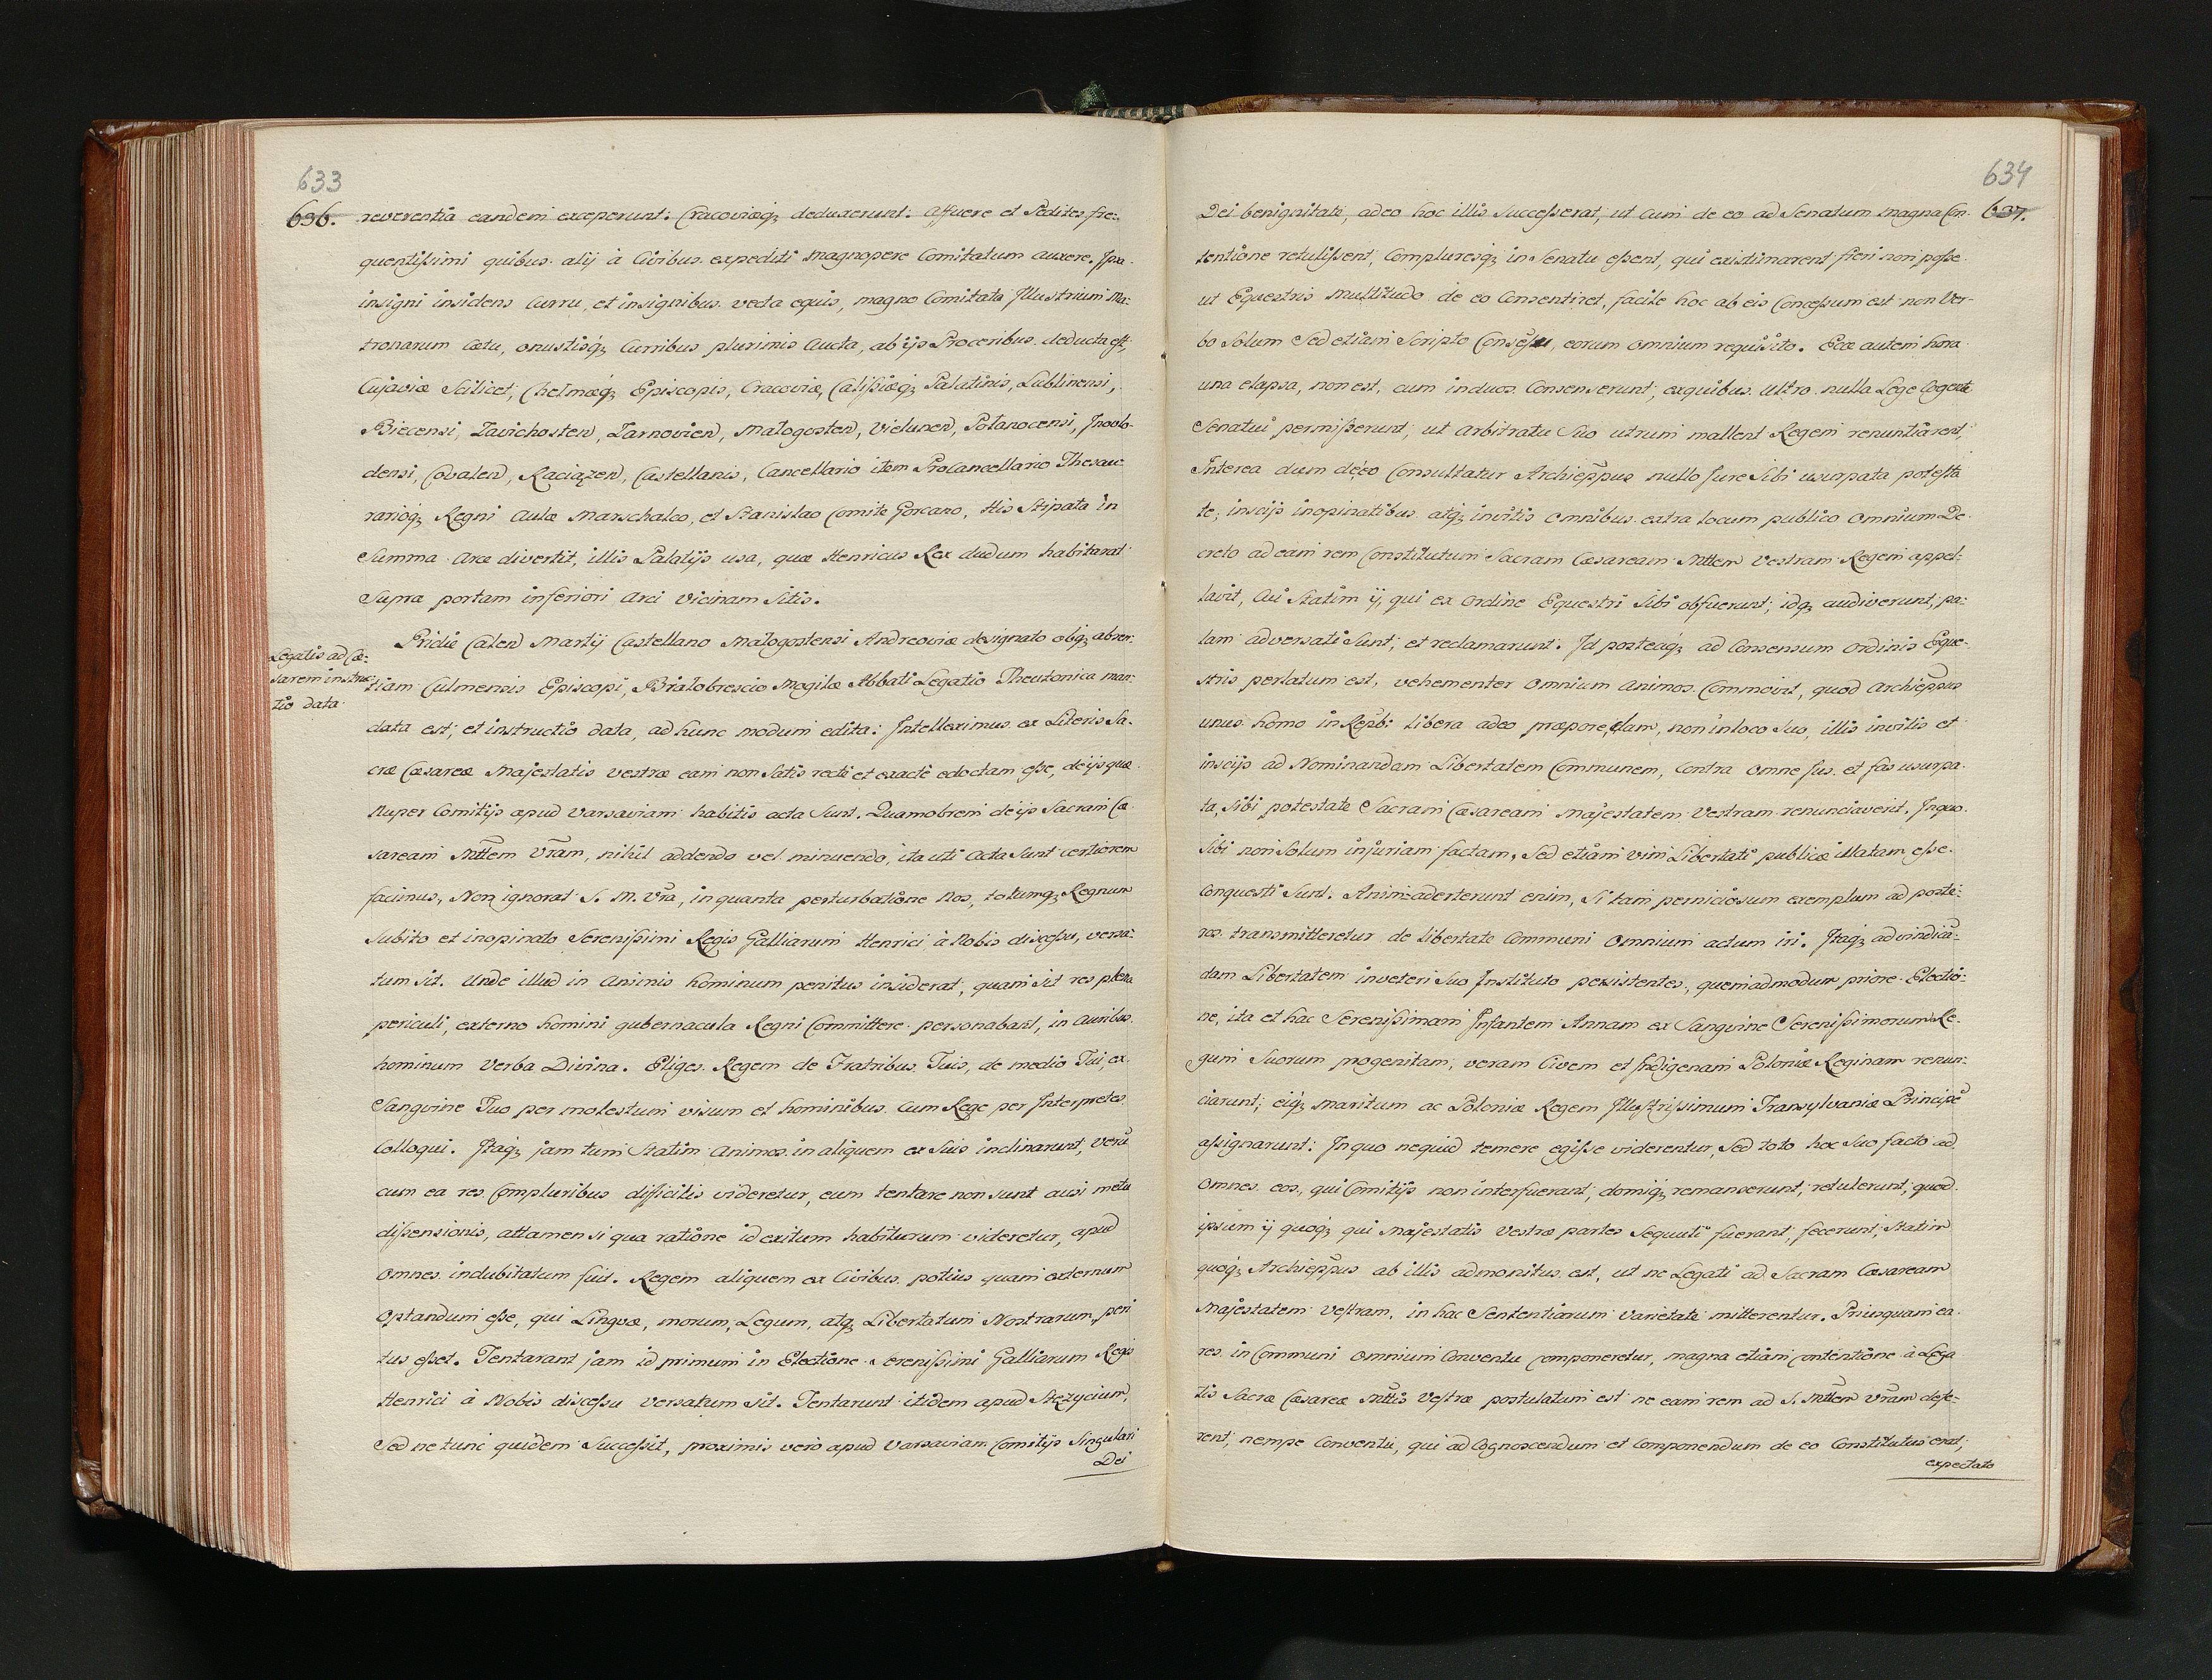 633
636. reverentia eandem exceperunt: Cracoviaq; deduxerunt: affuere et Pedites fre:
quentißimi quibus alij à Civibus expediti magnopere Comitatum auxere. Ipa
insigni insidens Curru, et insignibus vecta equis, magno Comitatu Illustrium Ma:
tronarum Cætu, onustisq; Curribus plurimis Aucta, ab ijs Proceribus deducta est;
Cujaviæ Scilicet, Chelmæq; Episcopis, Cracoviæ, Calißiæq; Palatinis, Lublinensi,
Biecensi, Zavichosten, Tarnovien, Małogosten, Vielunen, Połanocensi, Inovlo-
densi, Covalen, Raciązen, Castellanis, Cancellario item ProCancellario Thesau
rarioq; Regni Aulæ Marschalco, et Stanislao Comite Gorcano, His Stipata in
Summa Arce divertit, illis Palatijs usa, quæ Henricus Rex dudum habitarat
Supra portam inferiori Arci Vicinam Sitis.
Pridie Calen Martij Castellano Małogostensi Andreoviæ designato obiq; absen:
Legatis ad Cæ:
sarem instruc
tio data
tiam Culmensis Episcopi, Białobrescio Mogilæ Abbati Legatio Theutonica man:
data est; et instructio data, ad hunc modum edita: Intelleximus ex Literis Sa-
cræ Cæsareæ Majestatis vestræ eam non Satis recte et exactè edoctam eße, de ijs quæ
Nuper Comitijs apud Varsaviam habitis acta Sunt. Quamobrem de ijs Sacram Cæ
saream Mttem Vram, nihil addendo vel minuendo, ita uti Acta Sunt certiorem
facimus, Non ignorat S. M. Vra, in quanta perturbatione Nos, totumq; Regnum
Subito et inopinato Serenißimi Regis Galliarum Henrici à Nobis disceßu, versa:
tum sit. Unde illud in Animis hominum penitus insiderat, quam sit res plena
periculi, externo homini gubernacula Regni Committere personabant, in Auribus
hominum Verba Divina. Eliges Regem de Fratribus Tuis, de medio Tui, ex
Sangvine Tuo per molestum visum et hominibus Cum Rege per Interpretes
Colloqui. Itaq; jam tum Statim Animos in aliquem ex Suis inclinarunt, Verũ
cum ea res Compluribus difficilis videretur, eum tentare non sunt ausi metu
dißensionis, attamen si qua ratione id exitum habiturum videretur, apud
Omnes indubitatum fuit. Regem aliquem ex Civibus potius quam externum
Optandum eße, qui Lingvæ, morum, Legum, atq; Libertatum Nostrarum, peri
tus eßet. Tentarant jam id primum in Electione Serenißimi Galliarum Regis
Henrici à Nobis disceßu versatum sit. Tentarunt itidem apud Stęzycium,
Sed ne tunc quidem Succeßit, proximis vero apud Varsaviam Comitijs Singulari
Dei
634
637.
Dei benignitate, adeo hoc illis Succeßerat, ut Cum de eo ad Senatum magna Con-
tentione retulißent, Compluresq; in Senatu eßent, qui existimarent fieri non poße
ut Equestris Multitudo de eo Consentiret, facile hoc ab eis Conceßum est non Ver-
bo Solum Sed etiam Scripto Consensu, eorum omnium requisito. Ecce autem hora
una elapsa, non est, cum in duos Consenserunt, ex quibus Ultro nulla Lege Cogente
Senatui permißerunt, ut Arbitratu Suo utrum mallent Regem renuntiarent,
Interea dum de eo Consultatur Archieppus nullo Jure Sibi usurpata potesta
te, inscijs inopinatibus atq; invitis Omnibus extra locum publico Omnium De
creto ad eam rem Constitutum Sacram Cæsaream Mttem Vestram Regem appel-
lavit, Cui Statim ij, qui ex Ordine Equestri Sibi obfuerunt, idq; audiverunt, pa:
lam adversati Sunt, et reclamarunt. Id posteaq; ad Consensum Ordinis Eque-
stris perlatum est, vehementer Omnium Animos Commovit, quod Archieppus
unus homo in Repbi libera adeo præpore clam, non in loco Suo, illis invitis et
inscijs ad Nominandam Libertatem Communem, Contra Omne Jus et fas usurpa
ta, Sibi potestate Sacram Cæsaream Majestatem Vestram renunciaverit. In quo
Sibi non Solum injuriam factam, Sed etiam vim Libertati publicæ illatam eße
Conquesti Sunt. Animadverterunt enim, Si tam perniciosum exemplum ad poste:
ros transmitteretur de libertate Communi Omnium actum iri. Itaq; ad vindicã:
dam Libertatem in veteri Suo Instituto persistentes, quemadmodum priore Electio:
ne, ita et hac Serenißimam Infantem Annam ex Sangvine Serenißimorum Re-
gum Suorum progenitam, veram Civem et Indigenam Poloniæ Reginam renun:
ciarunt; eiq; maritum ac Poloniæ Regem Illustrißimum Transylvaniæ Principẽ
aßignarunt: In quo nequid temere egiße viderentur, Sed toto hoc Suo facto ad
Omnes eos, qui Comitijs non interfuerant, domiq; remanserunt, retulerunt, quod
ipsum ij quoq; qui Majestatis Vestræ partes Sequuti fuerant, fecerunt, Statim
quoq; Archieppus ab illis admonitus est, ut ne Legati ad Sacram Cæsaream
Majestatem Vestram, in hac Sententiarum Varietate mitterentur. Priusquam ea
res in Communi Omnium Conventu Componeretur, magna etiam contentione à Lega
tis Sacræ Cæsareæ Mttis Vestræ postulatum est ne eam rem ad S. Mttem Vram defe-
rent, nempe Conventu, qui ad Cognoscendum et Componendum de eo Constitutus erat,
expectato